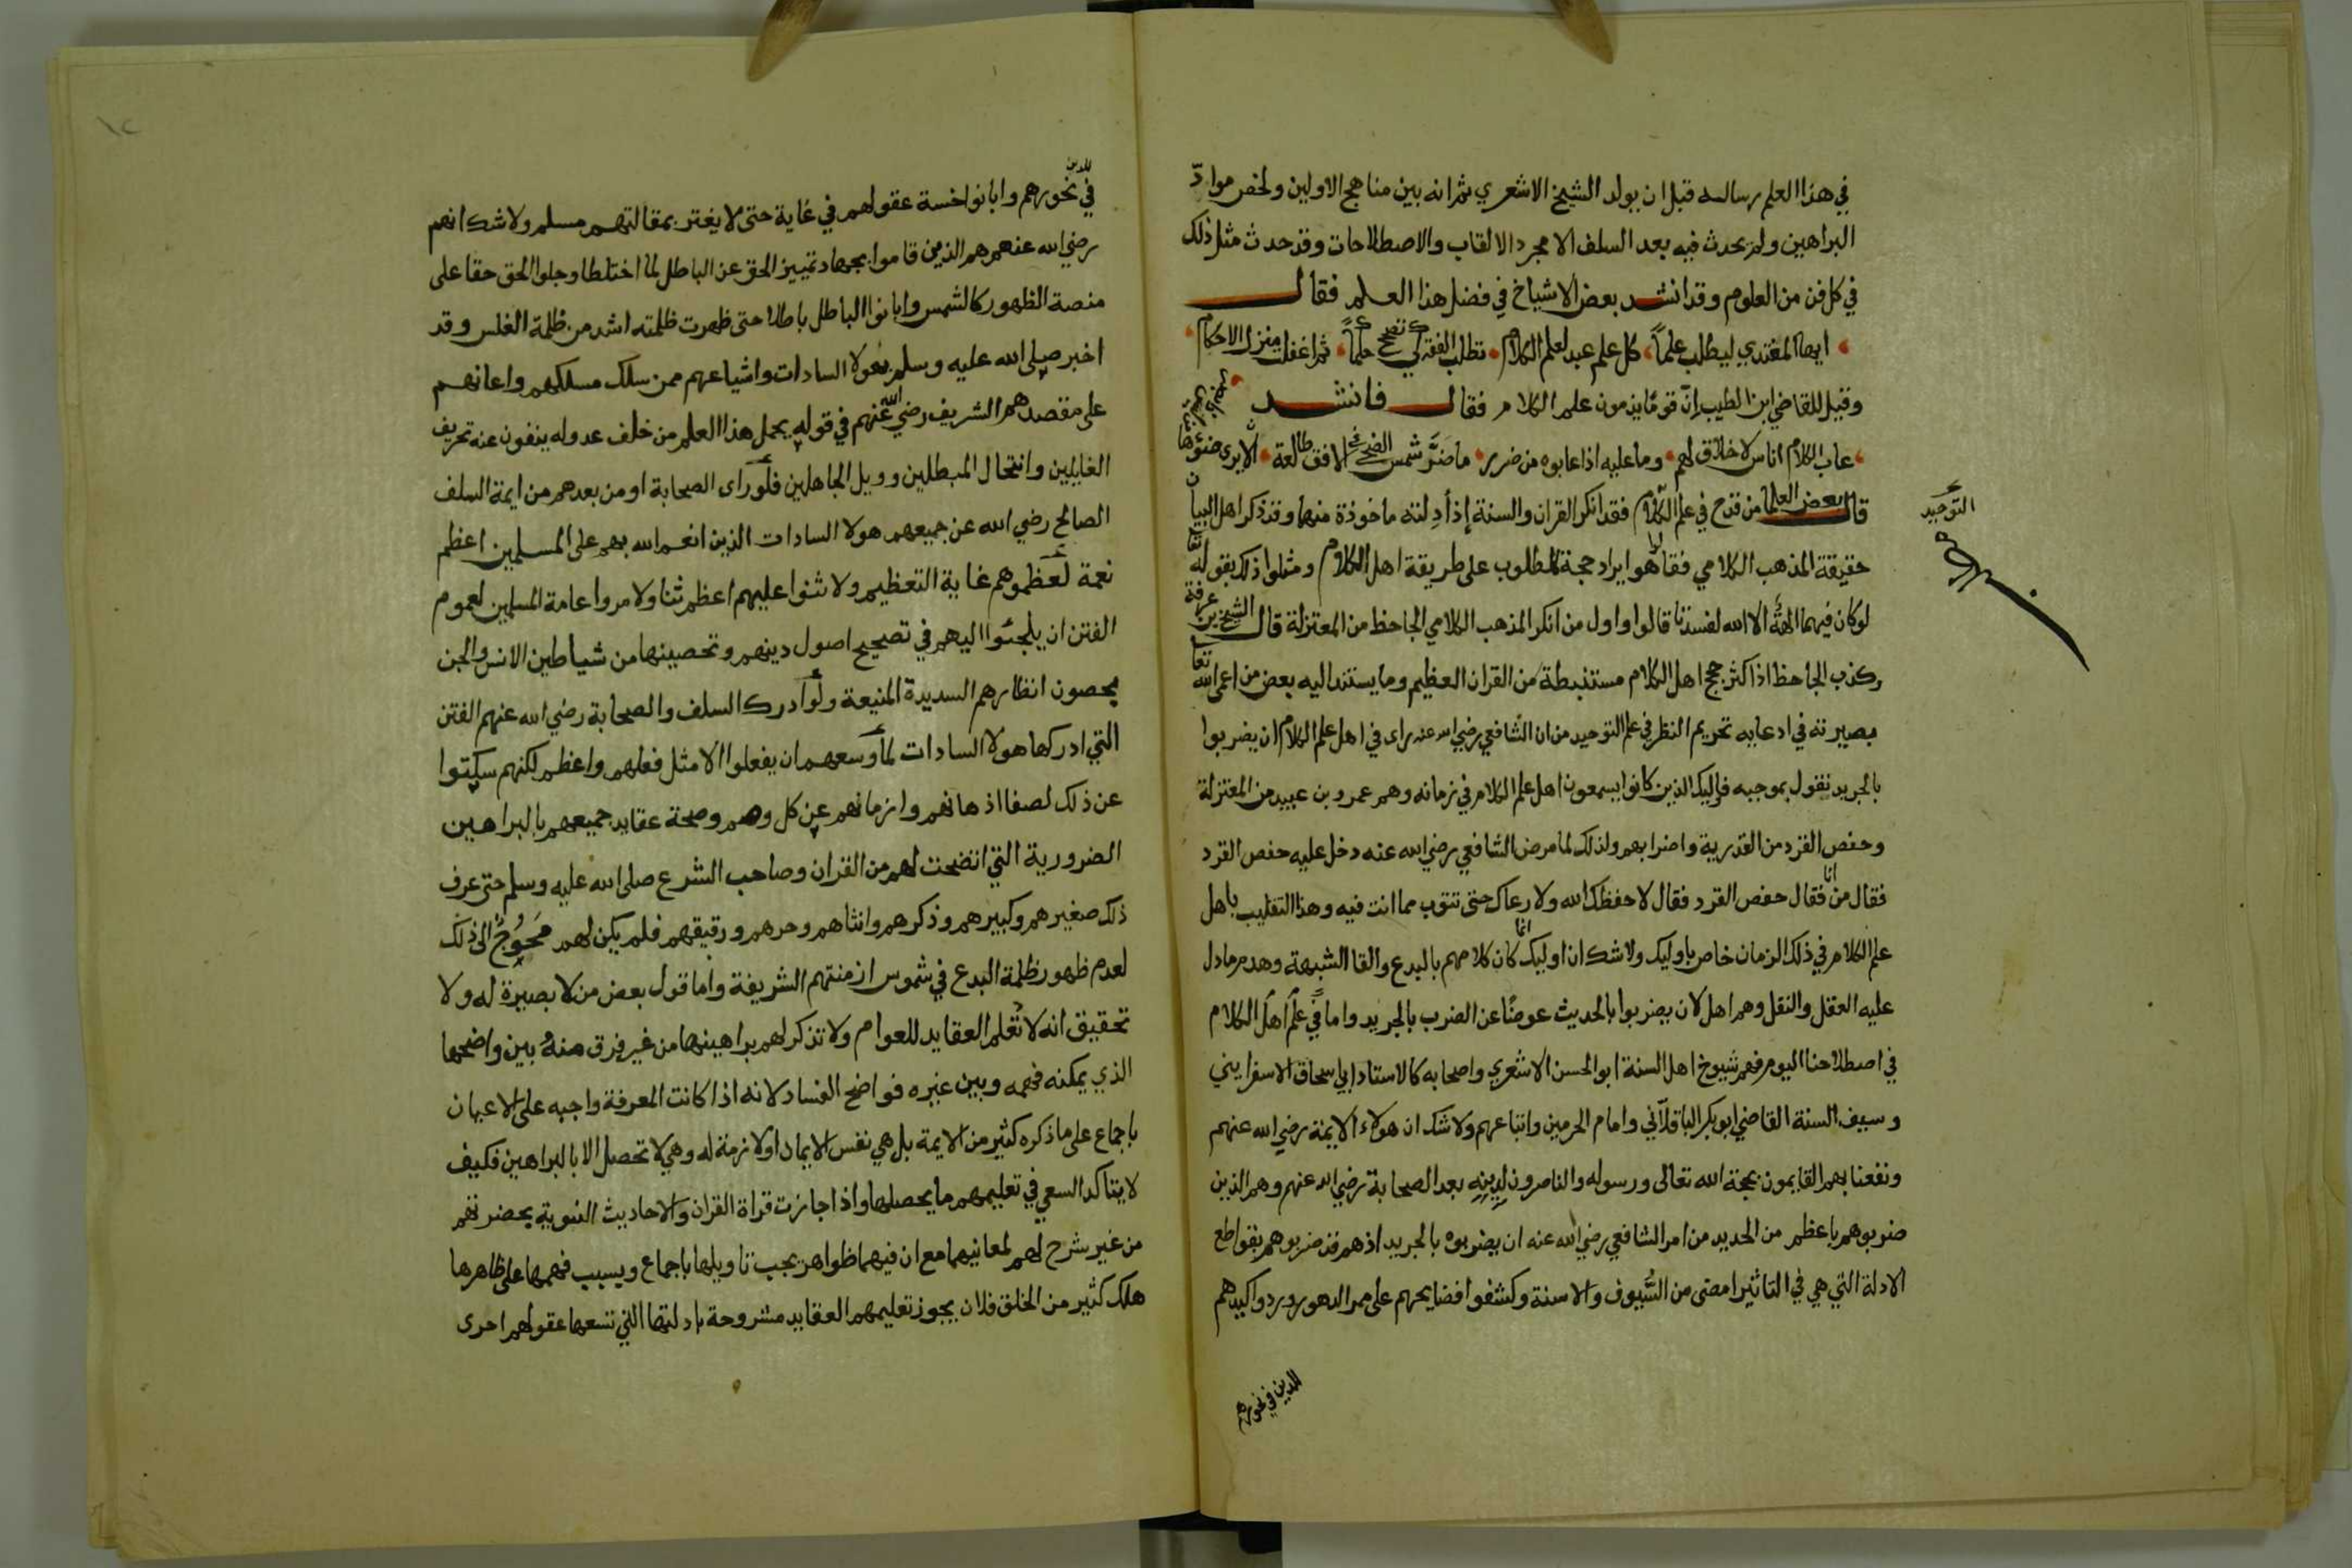 في هذا العلم رسالة قبل ان يولد الشيخ الاشعري ثم انه بين مناهج الاولين ولخص موادّ
البراهين ولم يحدث فيه بعد السلف الا مجرد الالقاب والاصطلاحات وقد حدث مثل ذلك
في كل فن من العلوم وقد انشد بعض الاشياخ في فضل هذا العلم فقال
ايها المغتدي ليطلب علماً كل علم عبد لعلم الكلام تطلب الفقه كي تصحح حكماً ثم اغفلت منزل الاحكام
وقيل للقاضي ابن الطيب إنّ قومًا يذمون علم الكلام فقال فانشد
عاب الكلام اناس لا خلاق لهم وما عليه اذا عابوه من ضرر ما ضرّ شمس الضحى في الافق طالعة ان لا يرى ضوءها من ليس ذا بصر
قال بعض العلما من قدح في علم الكلام فقد انكر القران والسنة إذ أدلته ماخوذة منها وقد ذكر اهل البيان
حقيقة المذهب الكلامي فقالوا هو ايراد حجة للمطلوب على طريقة اهل الكلام ومثلوا ذلك بقوله تعا
لو كان فيهما الهة الا الله لفسدتا قالوا واول من انكر المذهب الكلامي الجاحظ من المعتزلة قال الشيخ بن عرفة
وكذب الجاحظ اذ اكثر حجج اهل الكلام مستنبطة من القران العظيم وما يستند اليه بعض من اعمى الله تعا
بصيرته في ادعايه تحريم النظر في علم التوحيد من ان الشافعي رضي الله عنه راى في اهل علم الكلام ان يضربوا
بالجريد نقول بموجبه فإليك الذين كانوا يسمعون اهل علم الكلام في زمانه وهم عمرو بن عبيد من المعتزلة
وحفص الفرد من القدرية واضرابهم ولذلك لما مرض الشافعي رضي الله عنه دخل عليه حفص القرد
فقال من انا فقال حفص القرد فقال لا حفظك الله ولا رعاك حتى تتوب مما انت فيه وهذا التقليب باهل
علم الكلام في ذلك الزمان خاص باوليك ولا شك ان اوليك انما كان كلامهم بالبدع والقا الشبهة وهدم ما دل
عليه العقل والنقل وهم اهل لان يضربوا بالحديث عوضًا عن الضرب بالجريد واما في علم اهل الكلام
في اصطلاحنا اليوم فهم شيوخ اهل السنة ابو الحسن الاشعري واصحابه كالاستاد ابي اسحاق الاسفرايني
وسيف السنة القاضي ابو بكر الباقلاني وامام الحرمين واتباعهم ولا شك ان هولاء الايمة رضي الله عنهم
ونفعنا بهم القايمون بحجة الله تعالى ورسوله والناصرون لدينه بعد الصحابة رضي الله عنهم وهم الذين
ضربوهم باعظم من الحديد من امر الشافعي رضي الله عنه ان يضربوه بالجريد اذ هم قد ضربوهم بقواطع
الادلة التي هي في التاثير امضى من السُّيوف والاسنة وكشفوا فضايحهم على ممر الدهور وردوا كيدهم
للدين في نحورهم
التوحيد
للدين
في نحورهم وابانوا خسة عقولهم في غاية حتى لا يغتر بمقالتهم مسلم ولا شك انهم
رضي الله عنهم هم الذين قاموا بجهاد تمييز الحق عن الباطل لما اختلطا وجلوا الحق حقا على
منصة الظهور كالشمس وابانوا الباطل باطلا حتى ظهرت ظلمته اشد من ظلمة الغلس وقد
اخبر صلى الله عليه وسلم بهولا السادات واشياعهم ممن سلك مسلكهم واعانهم
على مقصدهم الشريف رضي الله عنهم في قوله يحمل هذا العلم من خلف عدوله ينفون عنه تحريف
الغالين وانتحال المبطلين وويل الجاهلين فلو راى الصحابة او من بعدهم من ايمة السلف
الصالح رضي الله عن جميعهم هولا السادات الذين انعم الله بهم على المسلمين اعظم
نعمة لعظموهم غاية التعظيم ولاثنوا عليهم اعظم ثنا ولامروا عامة المسلمين لعموم
الفتن ان يلجئوا اليهم في تصحيح اصول دينهم وتحصينها من شياطين الانس والجن
بحصون انظارهم السديدة المنيعة ولو ادرك السلف والصحابة رضي الله عنهم الفتن
التي ادركها هولا السادات لما وسعهم ان يفعلوا الا مثل فعلهم واعظم لكنهم سكتوا
عن ذلك لصفا اذهانهم وازمانهم عن كل وهم وصحة عقايد جميعهم بالبراهين
الضرورية التي اتضحت لهم من القران وصاحب الشرع صلى الله عليه وسلم حتى عرف
ذلك صغيرهم وكبيرهم وذكرهم وانثاهم وحرهم ورقيقهم فلم يكن لهم مُحوِجٌ الى ذلك
لعدم ظهور ظلمة البدع في شموس ازمنتهم الشريفة واما قول بعض من لا بصيرة له ولا
تحقيق انه لا تُعلم العقايد للعوام ولا تذكر لهم براهينها من غير فرق منه بين واضحها
الذي يمكنه فهمه وبين غيره فواضح الفساد لانه اذا كانت المعرفة واجبه على الاعيان
باجماع على ما ذكره كثير من الايمة بل هي نفس الايمان او لازمة له وهي لا تحصل الا بالبراهين فكيف
لا يتاكد السعي في تعليمهم ما يحصلها واذا جازت قراة القران والاحاديث النبوية بحضرتهم
من غير شرح لهم لمعانيهما مع ان فيهما ظواهر يجب تاويلها باجماع وبسبب فهمها على ظاهرها
هلك كثير من الخلق فلان يجوز تعليمهم العقايد مشروحة بادلتها التي تسعها عقولهم احرى
١٢